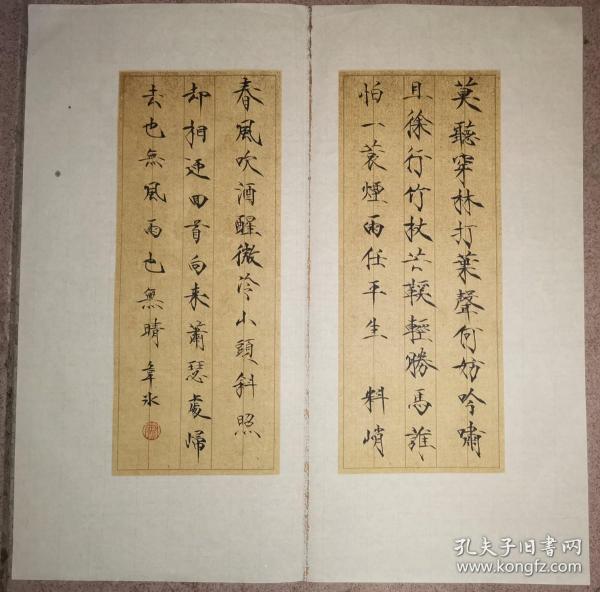 莫聽穿林打葉聲何妨吟嘯
且徐行竹杖芒鞵輕勝馬誰
怕一蓑煙雨任平生 料峭
春風吹酒醒微冷山頭斜照
却相迎回首向来蕭瑟處歸
去也無風雨也無晴
孔夫子旧书网
www.kongfz.com